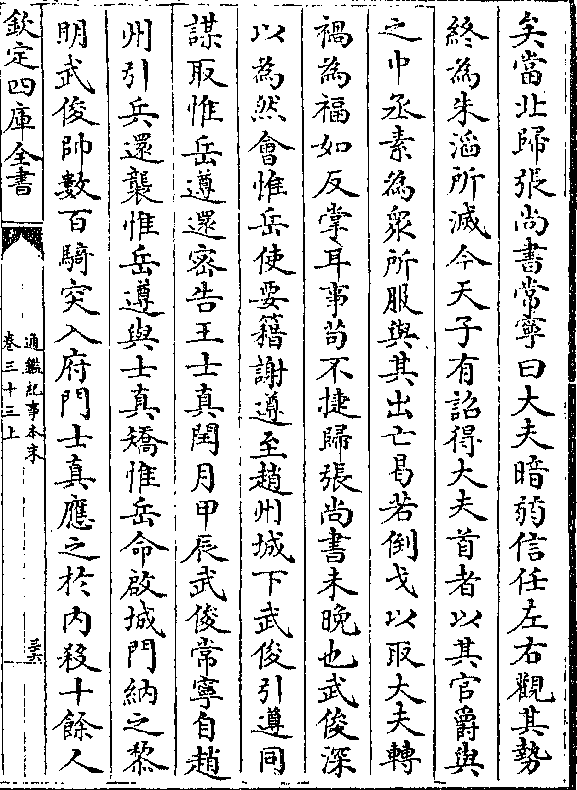 矣當北歸張尚書常寧曰大夫暗弱信任左右觀其勢
終為朱滔所滅今天子有詔得大夫首者以其官爵與
之中丞素為衆所服與其出亡曷若倒戈以取大夫轉
禍為福如反掌耳事茍不捷歸張尚書未晚也武俊深
以為然會惟岳使要籍謝遵至趙州城下武俊引遵同
謀取惟岳遵還密告王士真閏月甲辰武俊常寧自趙
州引兵還襲惟岳遵與士真矯惟岳命啟城門納之黎
明武俊帥數百騎突入府門士真應之於内殺十餘人
欽定四庫全書
通鑑紀事本末
卷三十三上